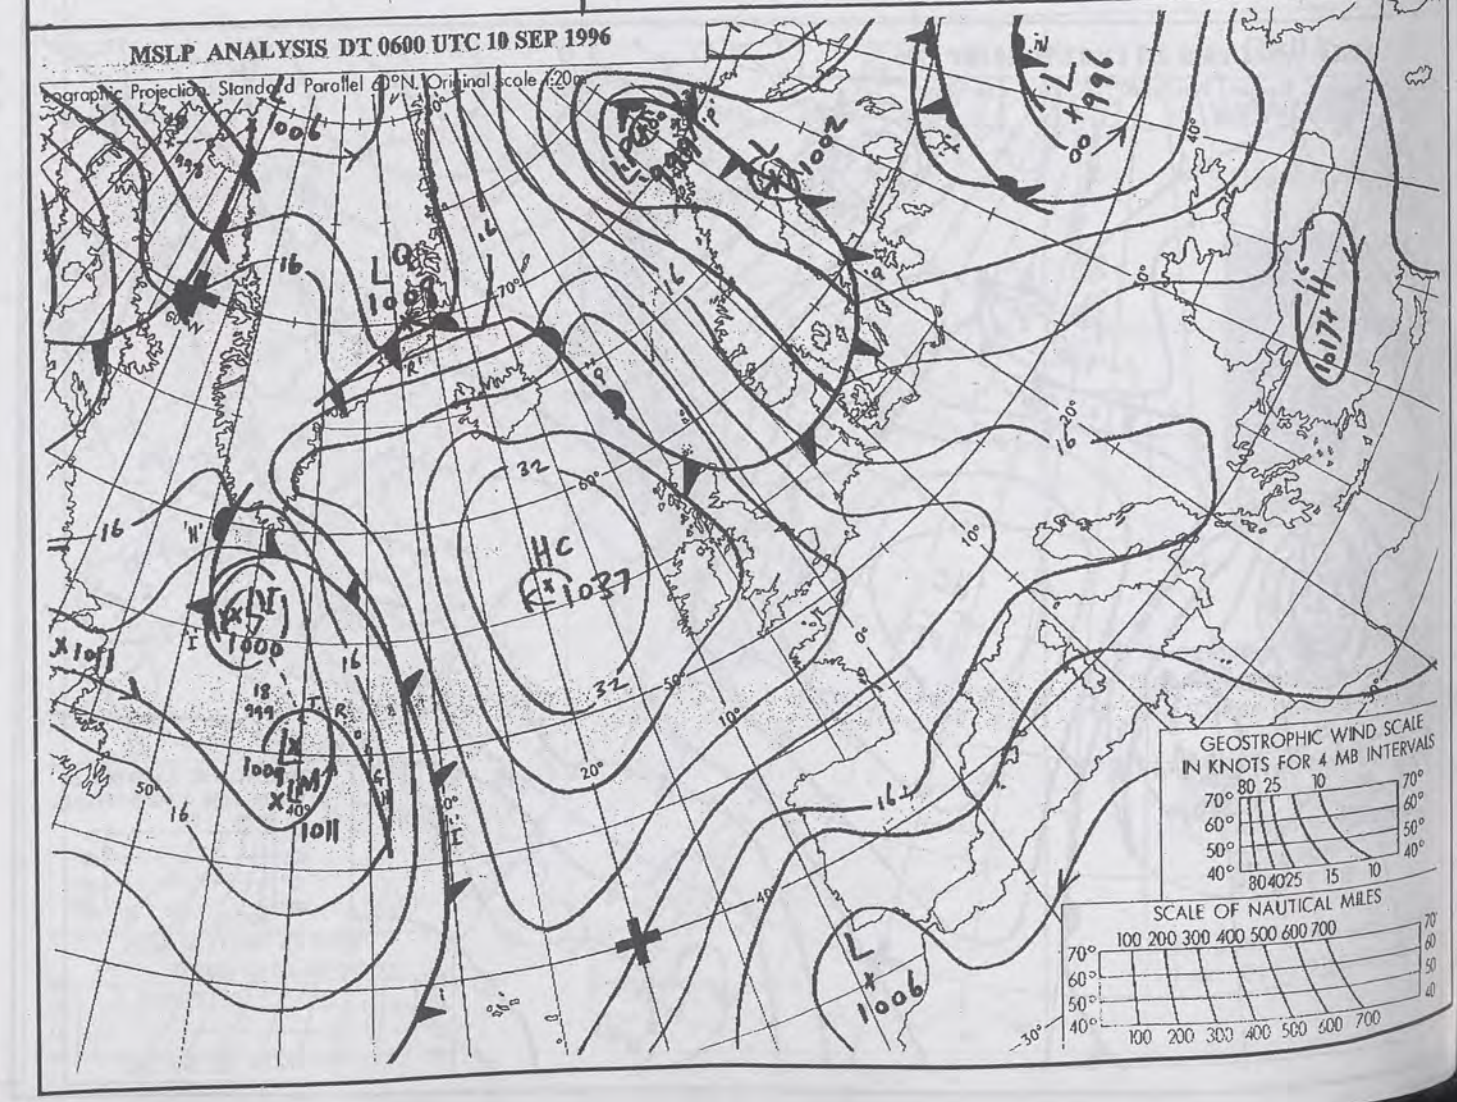 MSLP ANALYSIS DT 0600 UTC 10 SEP 1996
ographic Projection. Standard Parallel 60°N. Original scale 1:20m
L 1006
998
L
1002
L
996
16
L Q
1009
16
70°
16
'R'
60°N
H
1017
16
20°
32
60°
H C
1037
32
16
'H'
10°
0°
L
1000
I
1011
16
18
999
T R
50°
10°
L
1009
40°
1011
50°
16
20°
16
40°
L
1006
30°
GEOSTROPHIC WIND SCALE
IN KNOTS FOR 4 MB INTERVALS
80 25 10
70° 70°
60° 60°
50° 50°
40° 40°
80 40 25 15 10
SCALE OF NAUTICAL MILES
100 200 300 400 500 600 700
70° 70°
60° 60
50° 50
40° 40
100 200 300 400 500 600 700